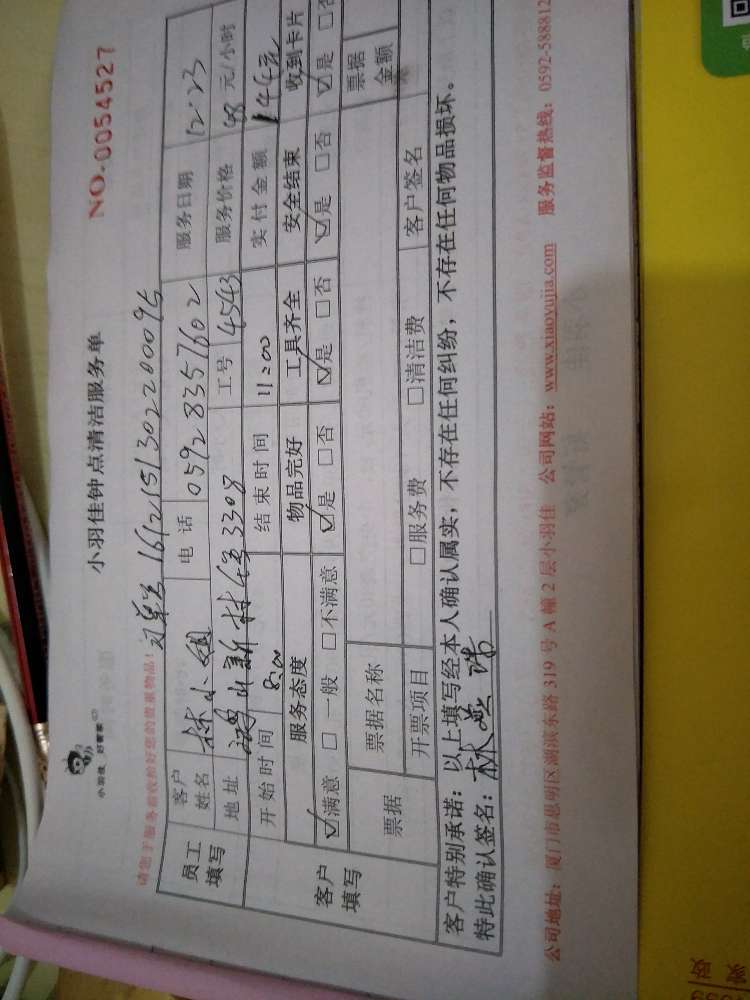 小羽佳 好管家
小羽佳钟点清洁服务单
NO.0054527
请您于服务前收拾好您的贵重物品!
订单号 1612151302200095
员工填写
客户姓名 林小姐 电话 05928357602 服务日期 12.23
地址 湖山新村 3308 工号 4543 服务价格 48 元/小时
开始时间 8:00 结束时间 11:00 实付金额 144元
客户填写
服务态度 物品完好 工具齐全 安全结束 收到卡片
☑满意 □一般 □不满意 ☑是 □否 ☑是 □否 ☑是 □否 ☑是 □否
票据 票据名称 票据金额
开票项目 □服务费 □清洁费 客户签名
客户特别承诺:以上填写经本人确认属实,不存在任何纠纷,不存在任何物品损坏。
特此确认签名:
公司地址:厦门市思明区湖滨东路 319 号 A 幢 2 层小羽佳 公司网站:www.xiaoyujia.com 服务监督热线:0592-588812
家政